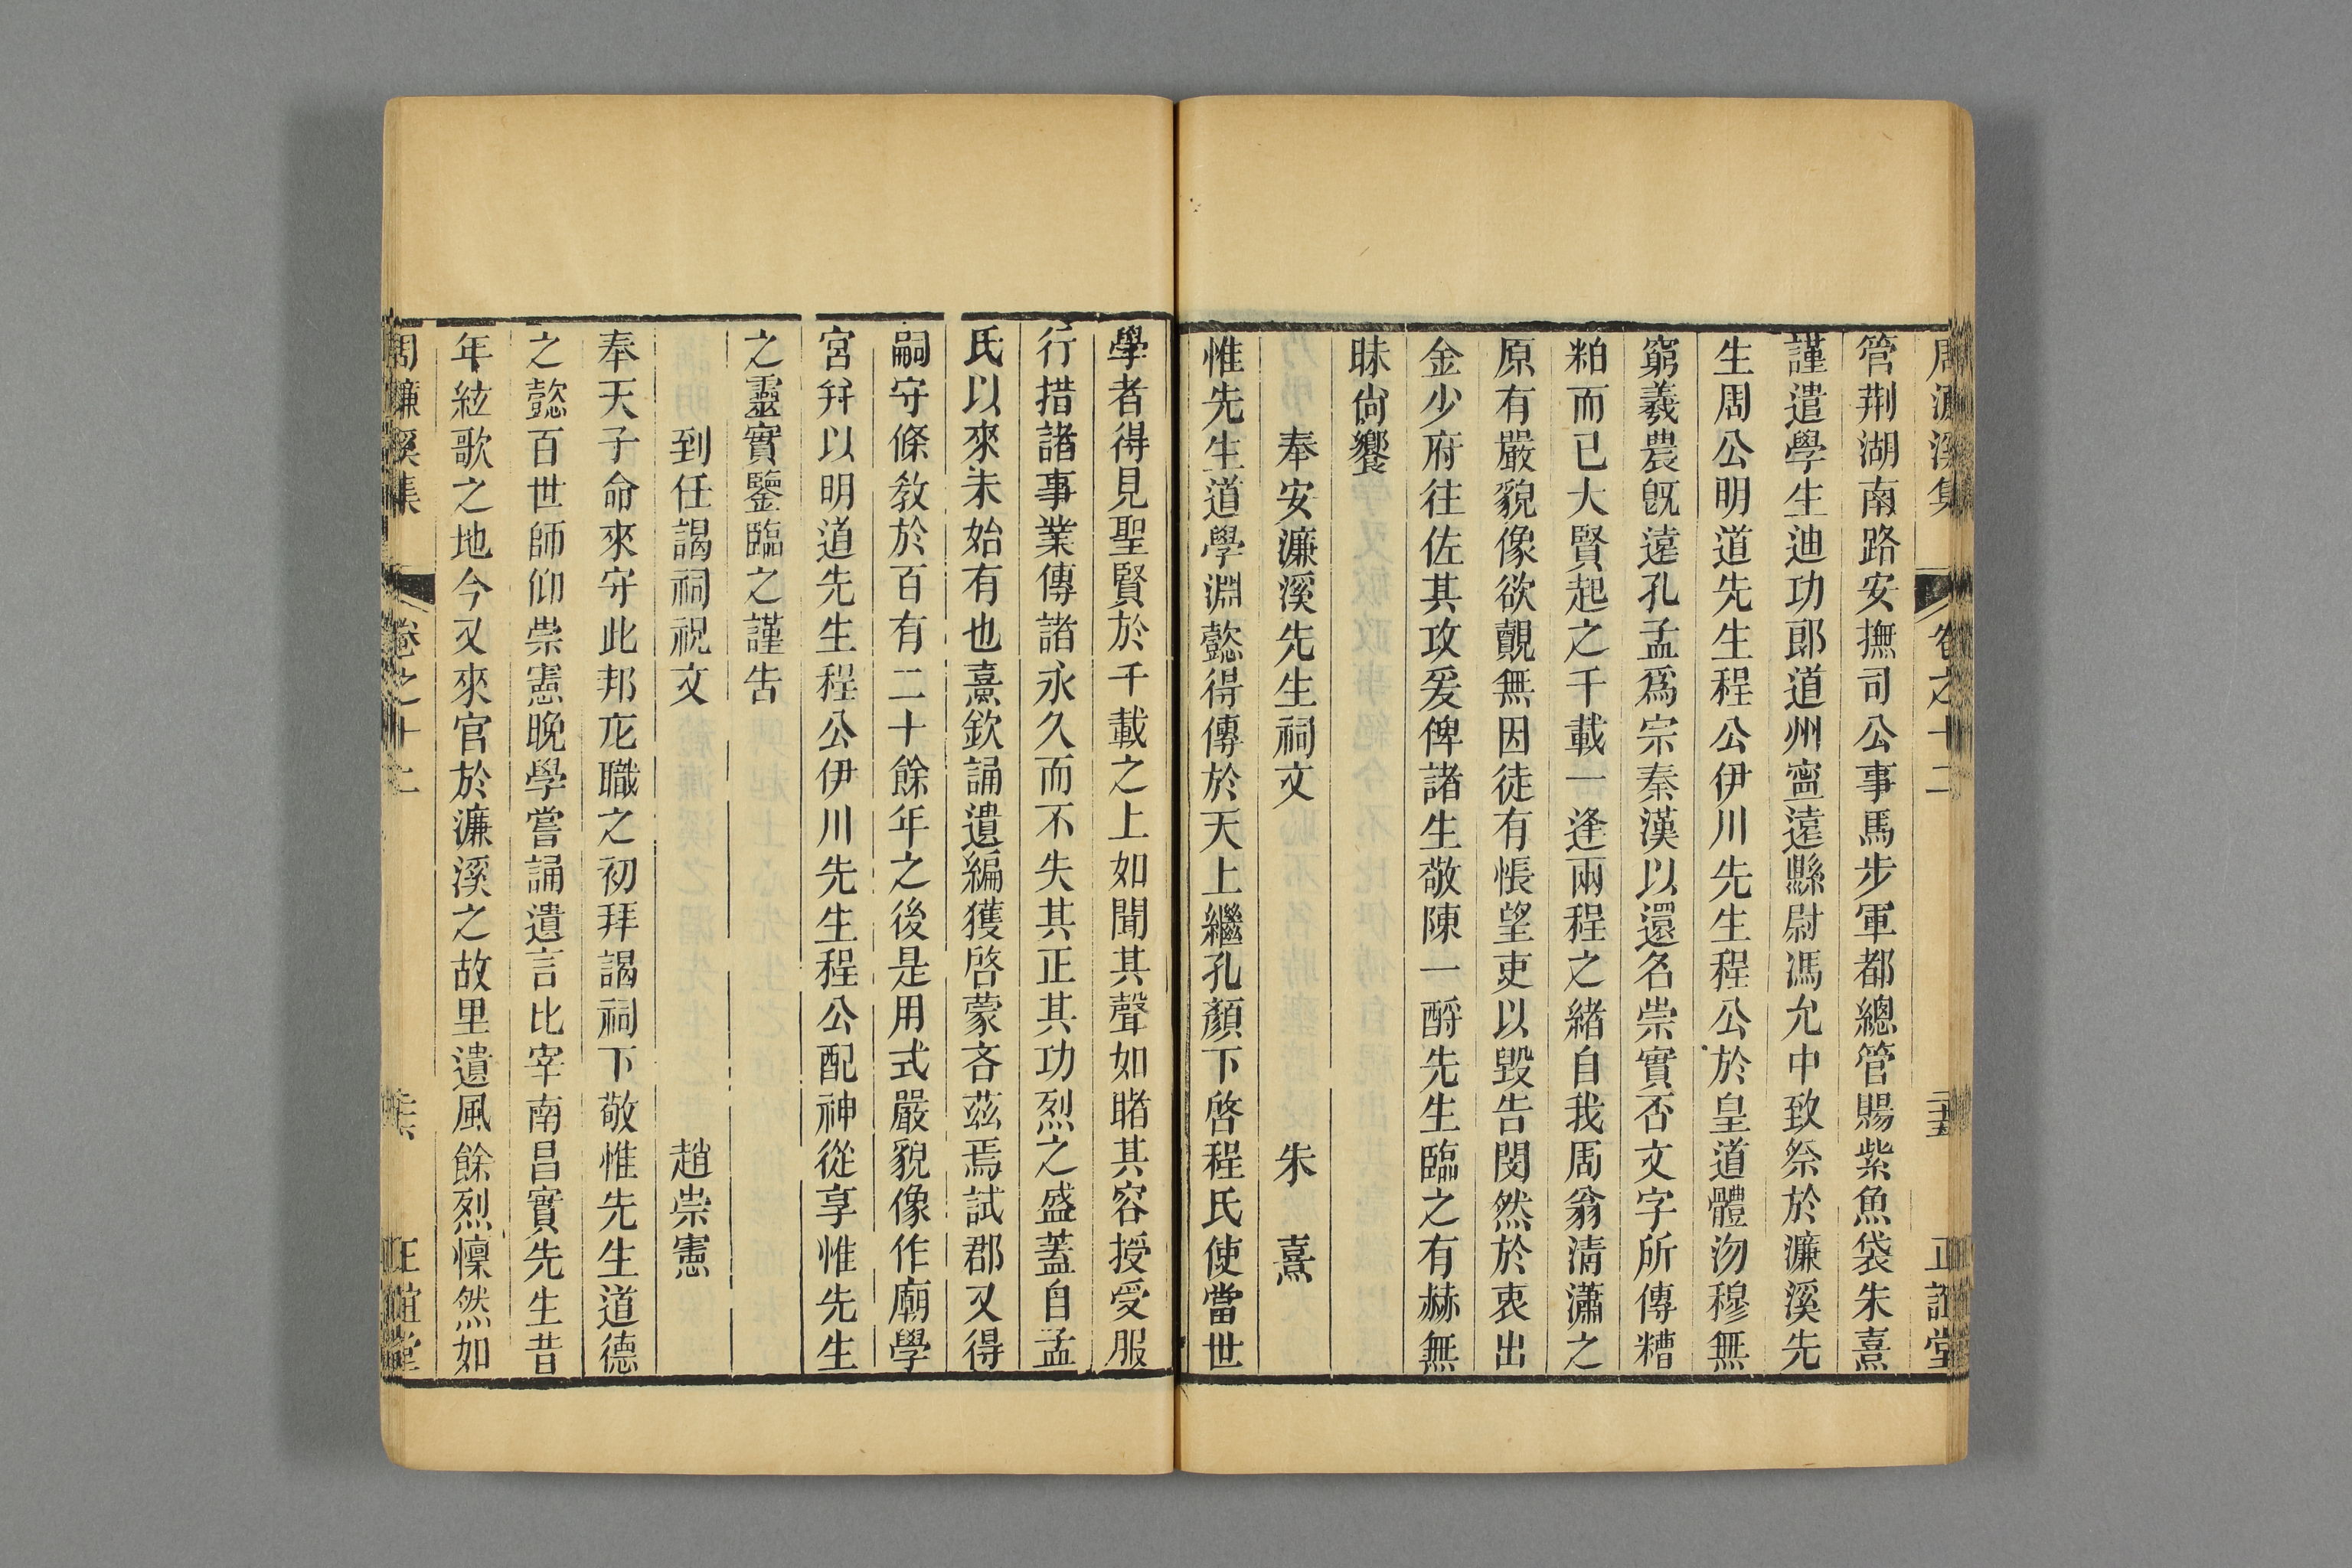 周濂溪集 卷之十二 二十五 正誼堂
管荆湖南路安撫司公事馬步軍都總管賜紫魚袋朱熹
謹遣學生迪功郎道州寧遠縣尉馮允中致祭於濂溪先
生周公明道先生程公伊川先生程公於皇道體沕穆無
窮羲農旣遠孔孟爲宗秦漢以還名崇實否文字所傳糟
粕而已大賢起之千載一逢兩程之緒自我周翁清瀟之
原有嚴貌像欲覿無因徒有悵望吏以毀告閔然於衷出
金少府往佐其攻爰俾諸生敬陳一酹先生臨之有赫無
昧尙饗
奉安濂溪先生祠文 朱熹
惟先生道學淵懿得傳於天上繼孔顏下啓程氏使當世
學者得見聖賢於千載之上如聞其聲如睹其容授受服
行措諸事業傳諸永久而不失其正其功烈之盛蓋自孟
氏以來未始有也熹欽誦遺編獲啓蒙吝茲焉試郡又得
嗣守條敎於百有二十餘年之後是用式嚴貌像作廟學
宮幷以明道先生程公伊川先生程公配神從享惟先生
之靈實鑒臨之謹告
到任謁祠祝文 趙崇憲
奉天子命來守此邦厖職之初拜謁祠下敬惟先生道德
之懿百世師仰崇憲晚學嘗誦遺言比宰南昌實先生昔
年絃歌之地今又來官於濂溪之故里遺風餘烈懍然如
周濂溪集 卷之十二 正誼堂